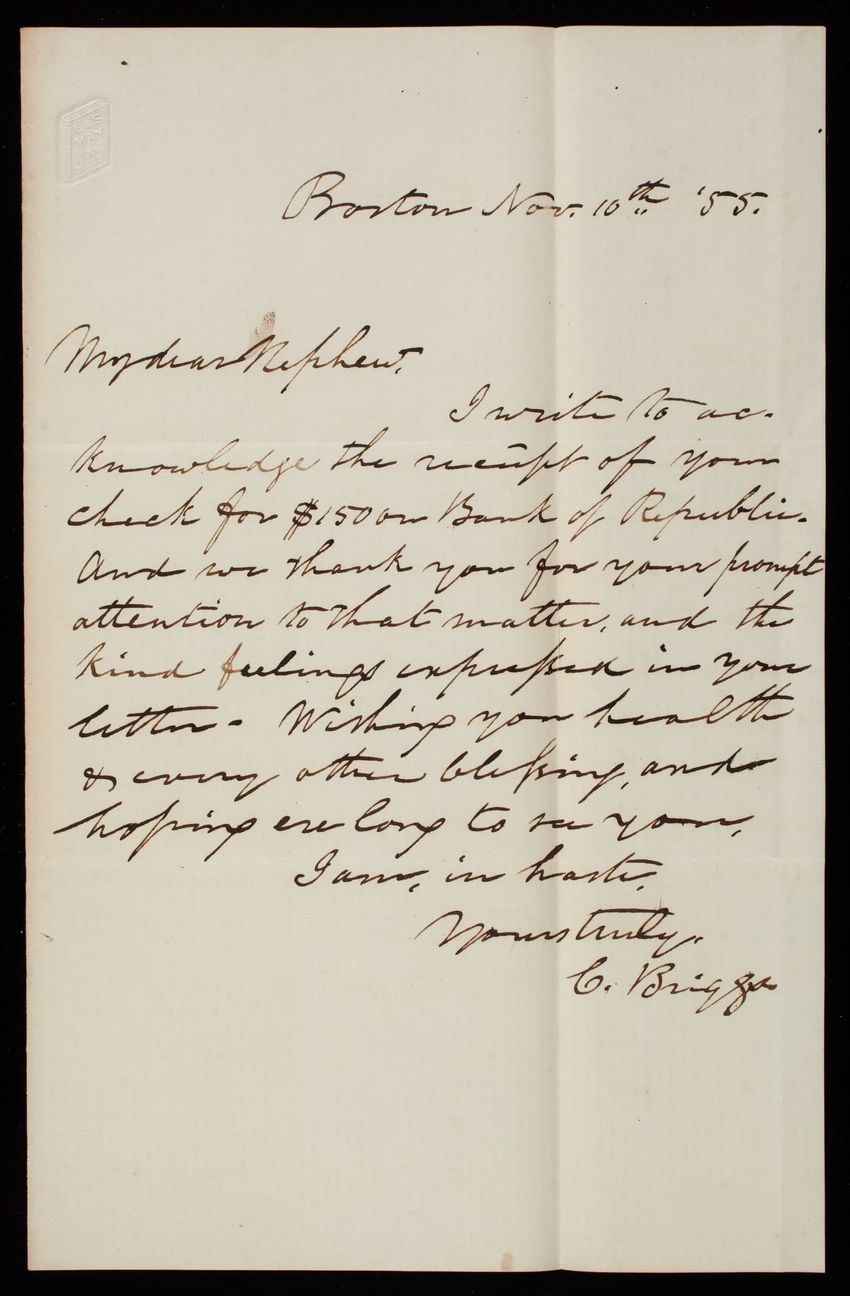 Boston Nov. 10th '55.
My dear Nephew,
I write to ac-
knowledge the receipt of your
check for $150 on Bank of Republic.
And we thank you for your prompt
attention to that matter, and the
kind feelings expressed in your
letter - Wishing you health
& every other blessing, and
hoping ere long to see you,
I am, in haste,
Yours truly,
C. Briggs